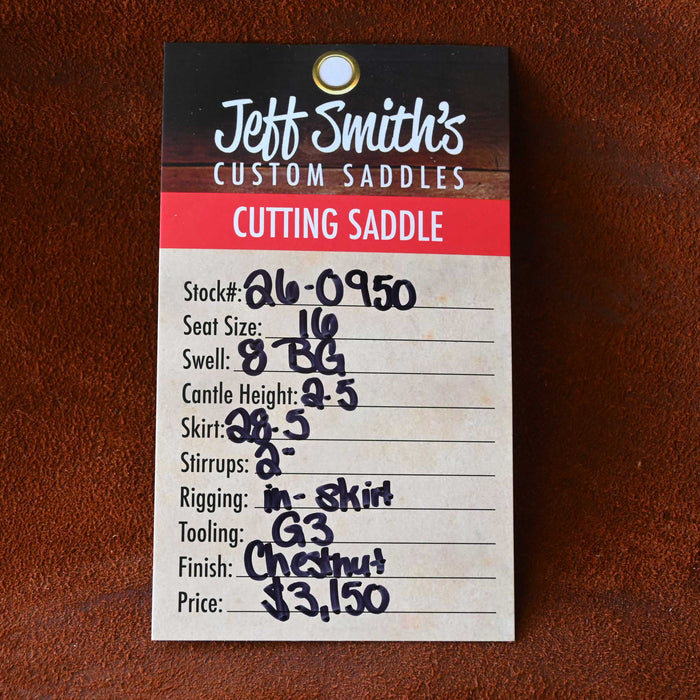 Jeff Smith's
CUSTOM SADDLES
CUTTING SADDLE
Stock#: 26-0950
Seat Size: 16
Swell: 8 BG
Cantle Height: 2.5
Skirt: 28.5
Stirrups: 2"
Rigging: in-skirt
Tooling: G3
Finish: Chestnut
Price: $3,150